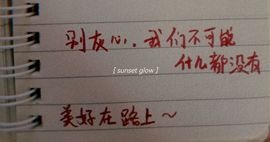 别灰心,我们不可能
什么都没有
[ sunset glow ]
美好在路上~